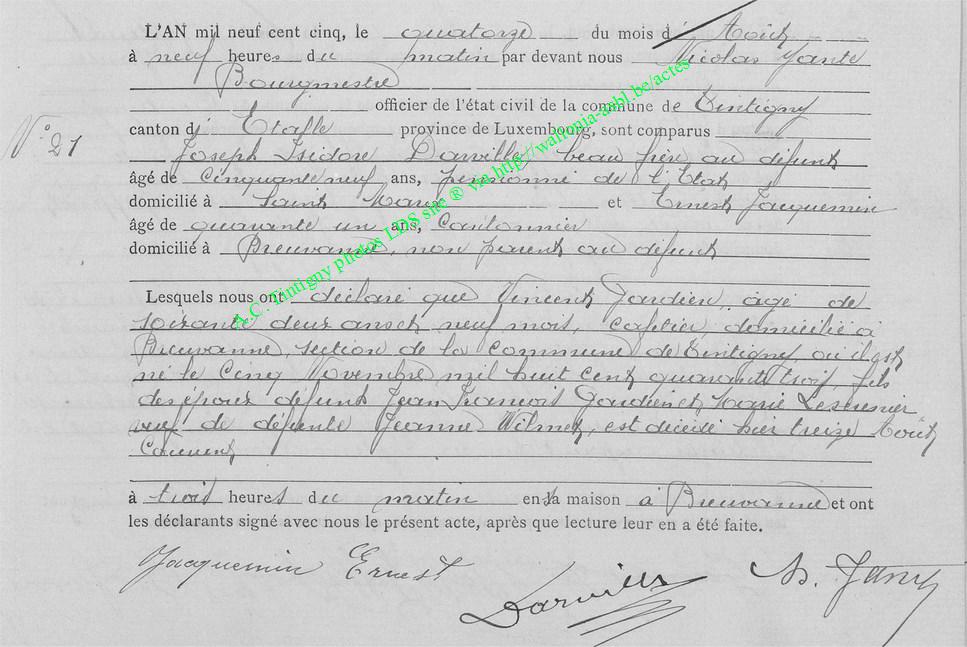 L'AN mil neuf cent cinq, le quatorze du mois d' Août
à neuf heures du matin par devant nous Nicolas
Bourgmestre
officier de l'état civil de la commune de Tintigny
N° 21
canton d' Etalle province de Luxembourg, sont comparus
Joseph Isidore Darville, beau frère au défunt
âgé de cinquante neuf ans, pensionné de l'Etat
domicilié à Saint Marie et Ernest Jacquemin
âgé de quarante un ans, Cantonnier
domicilié à Breuvanne, non parent au défunt
Lesquels nous ont déclaré que Vincent Gardien, agé de
soixante deux ans et neuf mois, cafetier domicilié à
Breuvanne, section de la commune de Tintigny, où il est
né le Cinq Novembre mil huit cent quarante trois, fils
des époux défunts Jean François Gardien et Marie
veuf de défunte Jeanne Wilmet, est décédé hier treize Août
Courant
à trois heures du matin en sa maison à Breuvanne et ont
les déclarants signé avec nous le présent acte, après que lecture leur en a été faite.
Jacquemin Ernest
Darville
A.C. Tintigny photos LDS site ® via http://wallonia-asbl.be/actes